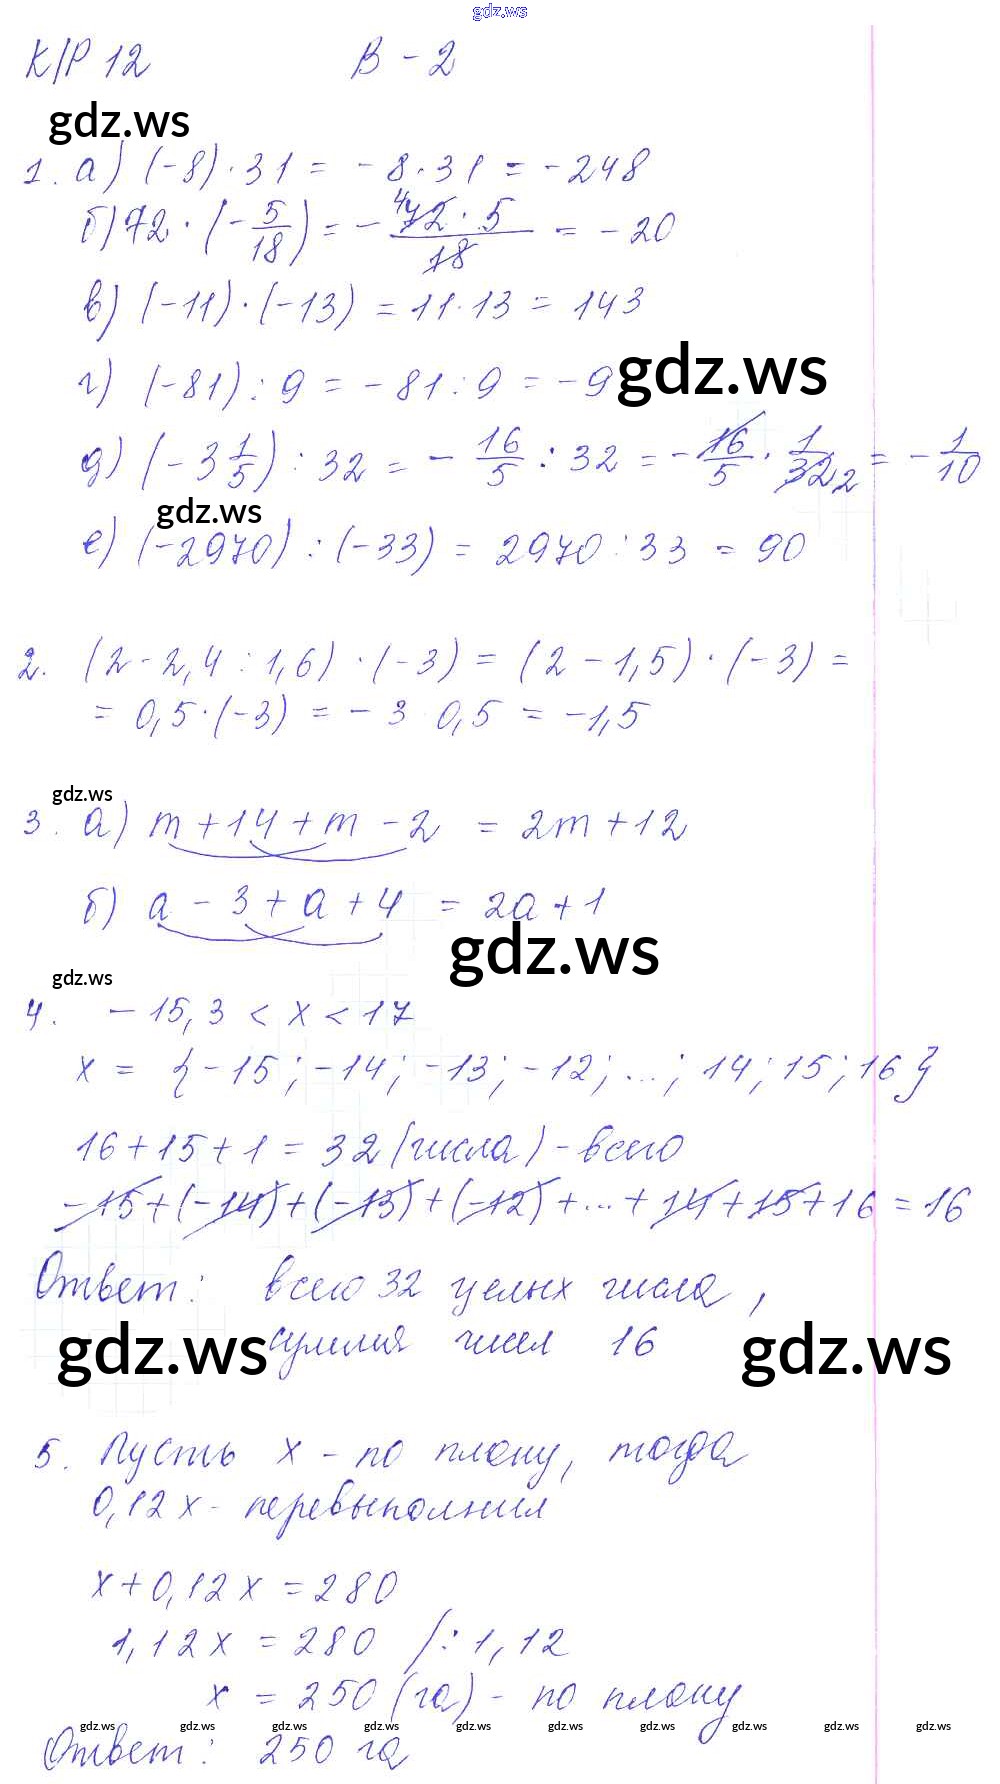 gdz.ws
К/Р 12 В - 2
gdz.ws
1. а) (-8) · 31 = - 8 · 31 = - 248
б) 72 · (- 5/18) = - 4 72 · 5 / 18 = - 20
в) (-11) · (-13) = 11 · 13 = 143
г) (-81) : 9 = - 81 : 9 = - 9
gdz.ws
д) (- 3 1/5) : 32 = - 16/5 : 32 = - 16/5 · 1/32 2 = - 1/10
gdz.ws
е) (-2970) : (-33) = 2970 : 33 = 90
2. (2 - 2,4 : 1,6) · (-3) = (2 - 1,5) · (-3) =
= 0,5 · (-3) = - 3 0,5 = -1,5
gdz.ws
3. а) m + 14 + m - 2 = 2m + 12
б) а - 3 + а + 4 = 2а + 1
gdz.ws
gdz.ws
4. - 15,3 < x < 17
x = {-15; -14; -13; -12; ...; 14; 15; 16}
16 + 15 + 1 = 32 (числа) - всего
-15 + (-14) + (-13) + (-12) + ... + 14 + 15 + 16 = 16
Ответ: всего 32 целых числа,
gdz.ws сумма чисел 16 gdz.ws
5. Пусть x - по плану, тогда
0,12x - перевыполнил
x + 0,12x = 280
1,12x = 280 /: 1,12
x = 250 (га) - по плану
gdz.ws gdz.ws gdz.ws gdz.ws gdz.ws gdz.ws gdz.ws gdz.ws gdz.ws gdz.ws
Ответ: 250 га